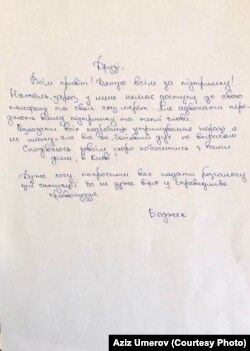 Друзі,
Всім привіт! Дякую всім за підтримку!
На жаль, зараз у мене немає доступу до свого
телефону та своїх соц. мереж. Але адвокати пере-
дають вашу підтримку та теплі слова.
Розказати всіх подробиць утримування наразі я
не можу, але все ок, бойовий дух не втрачаю.
Сподіваюсь зовсім скоро побачитись з вами
вдома, в Києві!
Дуже хочу попросити вас надати розголосу
цій ситуації бо не дуже вірю у справедливе
правосуддя
Боджек
Aziz Umerov (Courtesy Photo)